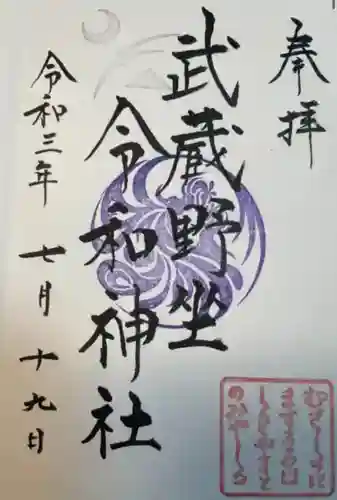 奉拝
武蔵野坐
令和神社
令和三年 七月 十九日